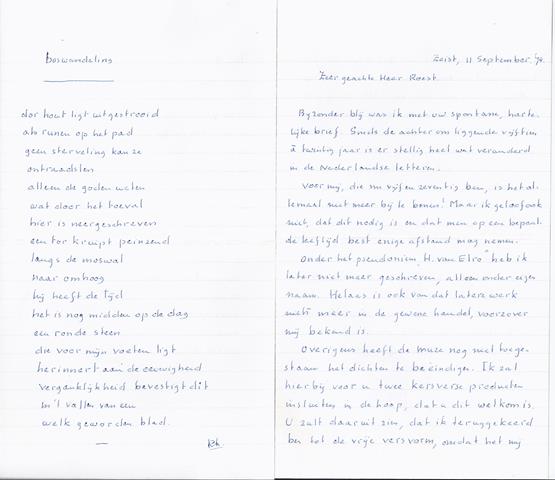 boswandeling
dor hout ligt uitgestrooid
als runen op het pad
geen sterveling kan ze
ontraadslen
alleen de goden weten
wat door het toeval
hier is neergeschreven
een tor kruipt peinzend
langs de moswal
naar omhoog
hij heeft de tijd
het is nog midden op de dag
een ronde steen
die voor mijn voeten ligt
herinnert aan de eeuwigheid
vergankelijkheid bevestigt dit
in 't vallen van een
welk geworden blad.
Zeist, 11 September '90.
Zeer geachte Heer Roest
Byzonder blij was ik met uw spontane, harte-
lijke brief. Sinds de achter ons liggende vijftien
à twintig jaar is er stellig heel wat veranderd
in de Nederlandse letteren.
Voor mij, die nu vijf en zeventig ben, is het al-
lemaal niet meer bij te benen! Maar ik geloof ook
niet, dat dit nodig is en dat men op een bepaal-
de leeftijd best enige afstand mag nemen.
Onder het pseudoniem „H. van Elro" heb ik
later niet meer geschreven, alleen onder eigen
naam. Helaas is ook van dat latere werk
niets meer in de gewone handel, voorzover
mij bekend is.
Overigens heeft de muze nog niet toege-
staan het dichten te beëindigen. Ik zal
hierbij voor u twee kersverse producten
insluiten in de hoop, dat u dit welkom is.
U zult daaruit zien, dat ik teruggekeerd
ben tot de vrije versvorm, omdat het mij